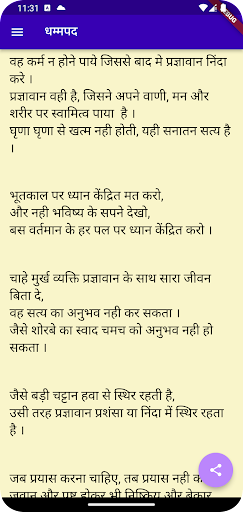 11:31
धम्मपद
वह कर्म न होने पाये जिससे बाद मे प्रज्ञावान निंदा
करे ।
प्रज्ञावान वही है, जिसने अपने वाणी, मन और
शरीर पर स्वामित्व पाया है ।
घृणा घृणा से खत्म नही होती, यही सनातन सत्य है
।
भूतकाल पर ध्यान केंद्रित मत करो,
और नही भविष्य के सपने देखो,
बस वर्तमान के हर पल पर ध्यान केंद्रित करो ।
चाहे मुर्ख व्यक्ति प्रज्ञावान के साथ सारा जीवन
बिता दे,
वह सत्य का अनुभव नही कर सकता ।
जैसे शोरबे का स्वाद चमच को अनुभव नही हो
सकता ।
जैसे बड़ी चट्टान हवा से स्थिर रहती है,
उसी तरह प्रज्ञावान प्रशंसा या निंदा में स्थिर रहता
है ।
जब प्रयास करना चाहिए, तब प्रयास नही
जवान और पुष्ट होकर भी निष्क्रिय और बेकार